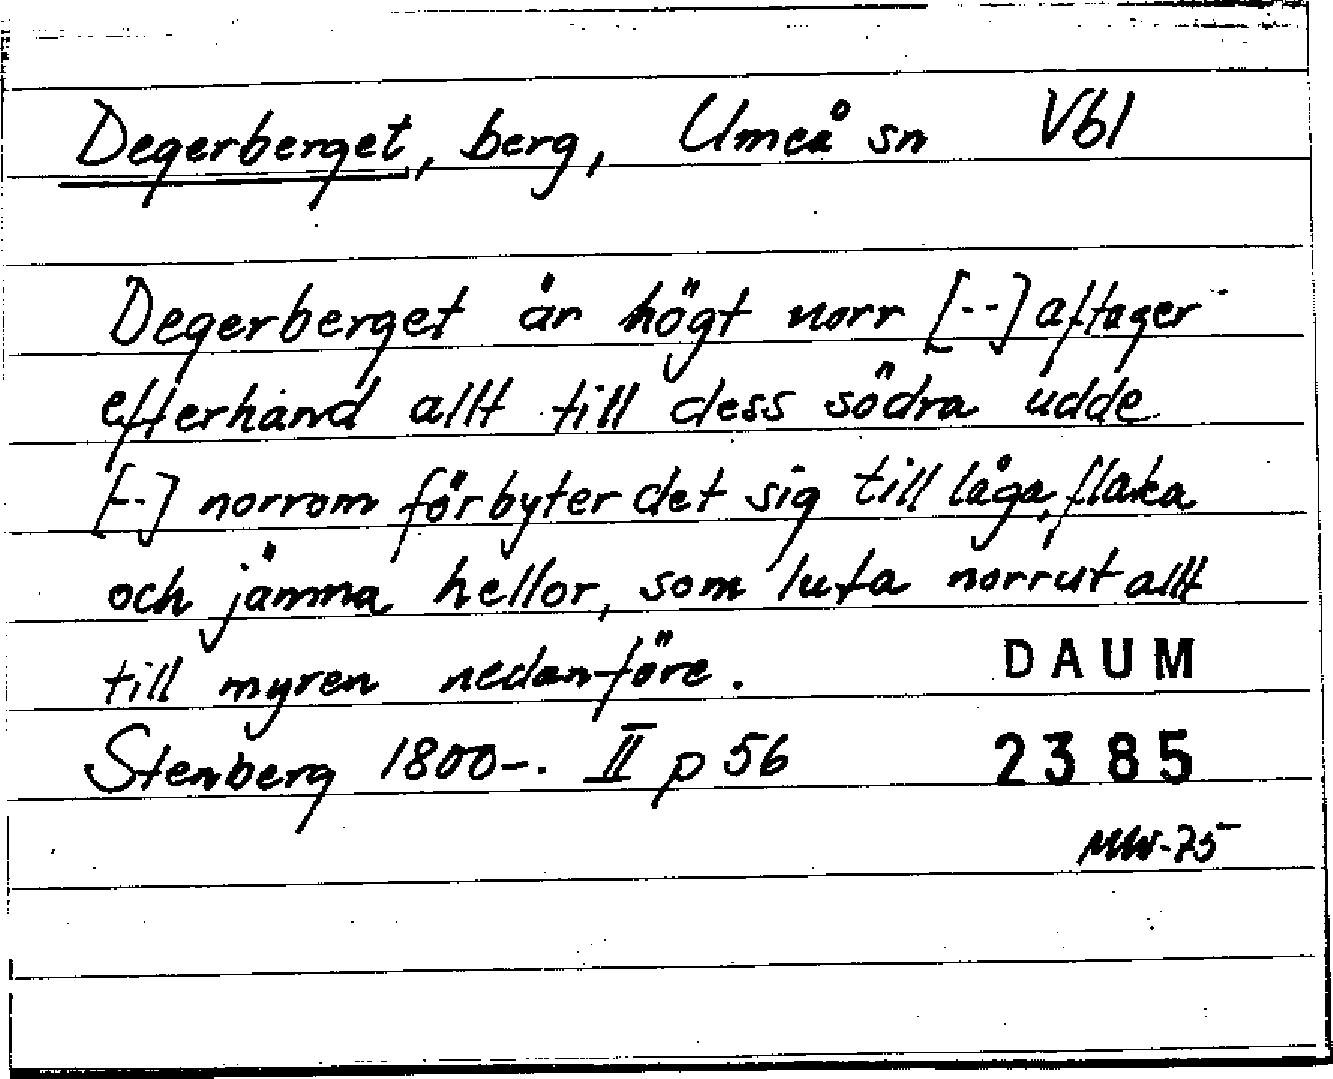 Degerberget, berg, Umeå sn Vbl
Degerberget är högt norr [--] aftager
efterhand allt till dess södra udde
[--] norrom förbyter det sig till låga, flaka
och jämna hellor, som luta norrut allt
till myren nedanföre. DAUM
Stenberg 1800-. II p 56 2385
MW-75